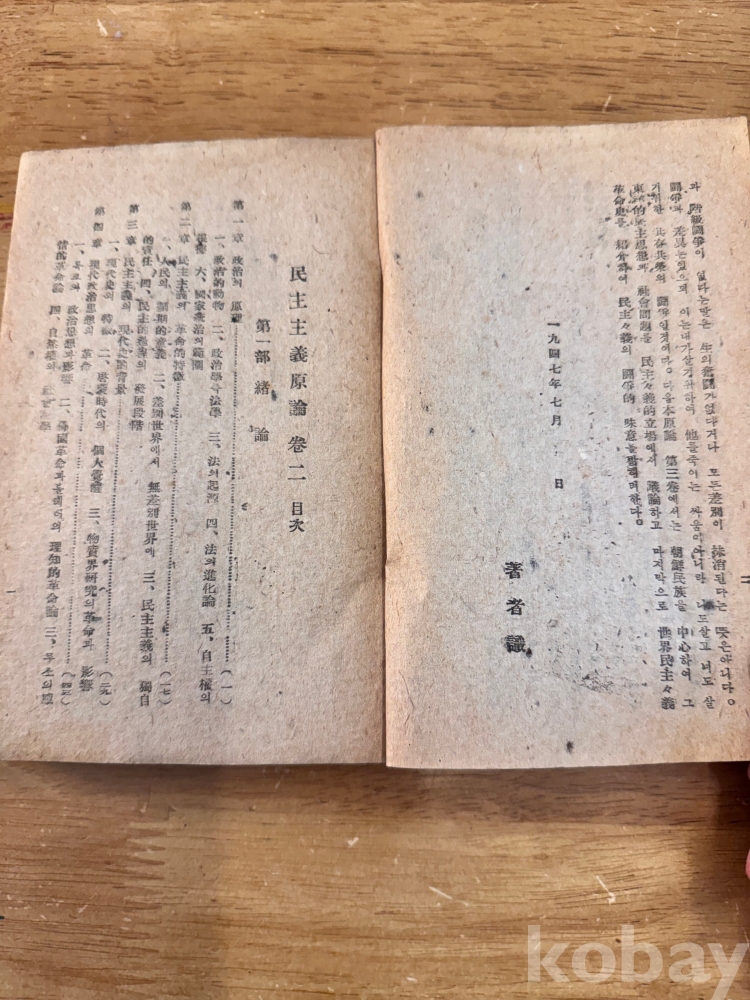 와 階級鬪爭이 없다는말은 生의 奮鬪가없다거나 모든差別이 抹消된다는 뜻은아니다。
鬪爭과 差異는있으며 이는대가살기위하여 他를죽이는 싸움이아니라 나도살고 너도 살
기위한 共存共榮의 鬪爭일것이다。다음本原論 第三卷에서는 朝鮮民族을 中心하여 그
東 的民主思想과 社會問題를 民主々義的立場에서 議論하고 마지막으로 世界民主々義
革命史를 紹介하여 民主々義의 鬪爭的 味意를 한다。
一九四七年七月 日
著者識
民主主義原論 卷二 目次
第一部 緖論
第一章 政治의 原理 (一)
一、政治的動物 二、政治學과法學 三、法의起源 四、法의進化論 五、自主權의
 六、國家政治의範圍
第二章 民主主義의 革命的特徵 (一七)
一、人民의 意義 二、差別世界에서 無差別世界에 三、民主主義의 獨自
的責任 四、民主的 發展段階
第三章 民主主義의 現代史的背景 (二九)
一、現代史의 特徵 二、 時代의 個人覺醒 三、物質界硏究의革命과 影響
第四章 現代政治思想의 革命 (四五)
一、 政治思想과影響 二、 國革命과 理知的革命論 三、루소의感
情的革命論 四、自然
一
二
kobay